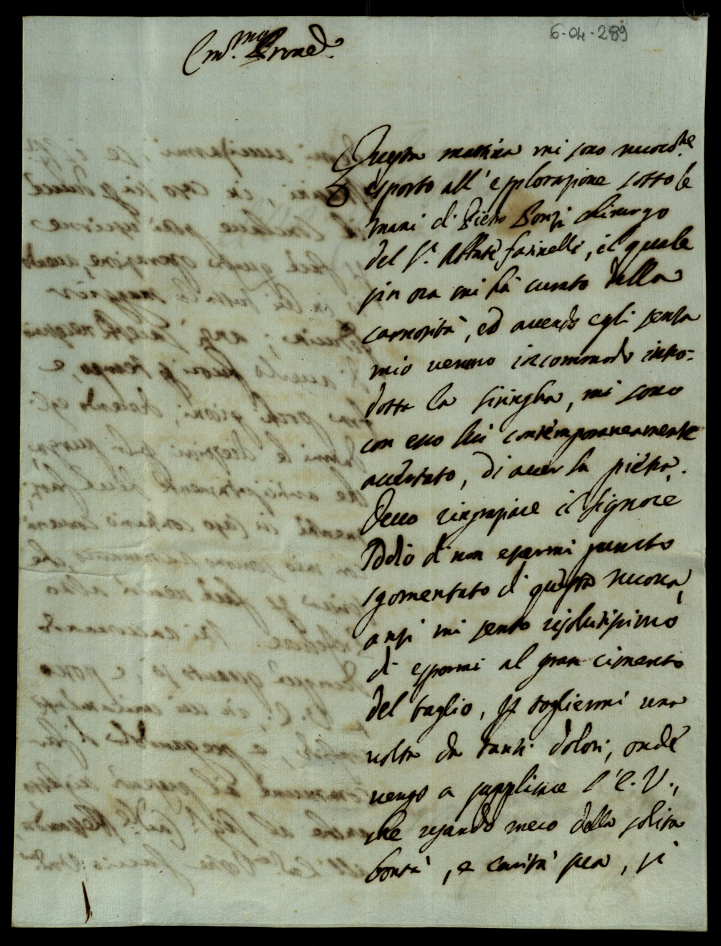 6-04-289
Em.mo Prone
Questa mattina mi sono nuovam.te
esposto all'esplorazione sotto le
mani di Pietro Bonzi chirurgo
del S.r Abbate farinelli, il quale
sin ora mi ha curato della
carnosità, ed avendo egli senza
mio veruno incommodo intro-
dotta la siringha, mi sono
con esso lui contemporaneamente
accertato, di aver la pietra.
Devo ringraziare il Signore
Iddio di non essermi punto
sgomentato di questa nuova,
anzi mi sento risolutissimo
di espormi al gran cimento
del taglio, p togliermi una
volta da tanti dolori, onde
vengo a supplicare l'E. V.,
che usando meco della solita
bontà, e carità sua, si